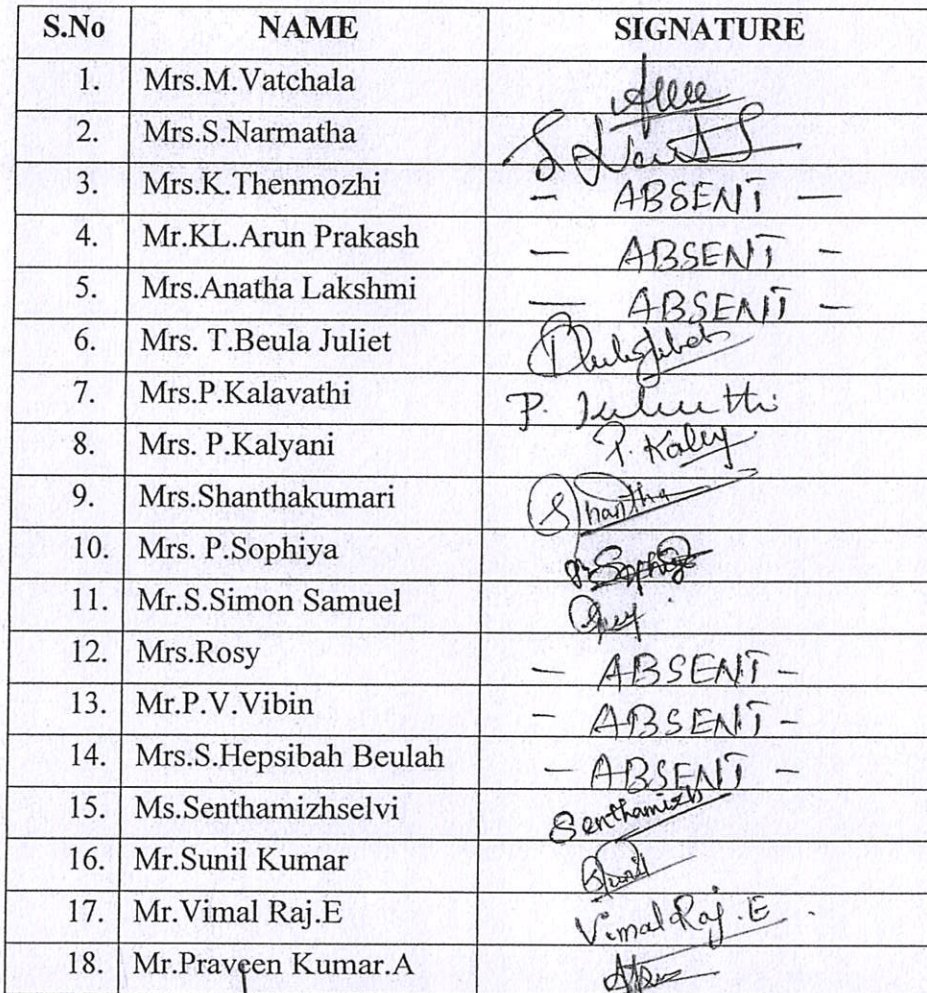 S.No NAME SIGNATURE
1. Mrs.M.Vatchala
2. Mrs.S.Narmatha
3. Mrs.K.Thenmozhi - ABSENT -
4. Mr.KL.Arun Prakash - ABSENT -
5. Mrs.Anatha Lakshmi - ABSENT -
6. Mrs. T.Beula Juliet
7. Mrs.P.Kalavathi P.
8. Mrs. P.Kalyani P. Kaley
9. Mrs.Shanthakumari Shantha
10. Mrs. P.Sophiya P. Sophiya
11. Mr.S.Simon Samuel
12. Mrs.Rosy - ABSENT -
13. Mr.P.V.Vibin - ABSENT -
14. Mrs.S.Hepsibah Beulah - ABSENT -
15. Ms.Senthamizhselvi Senthamizh
16. Mr.Sunil Kumar
17. Mr.Vimal Raj.E Vimal Raj.E
18. Mr.Praveen Kumar.A